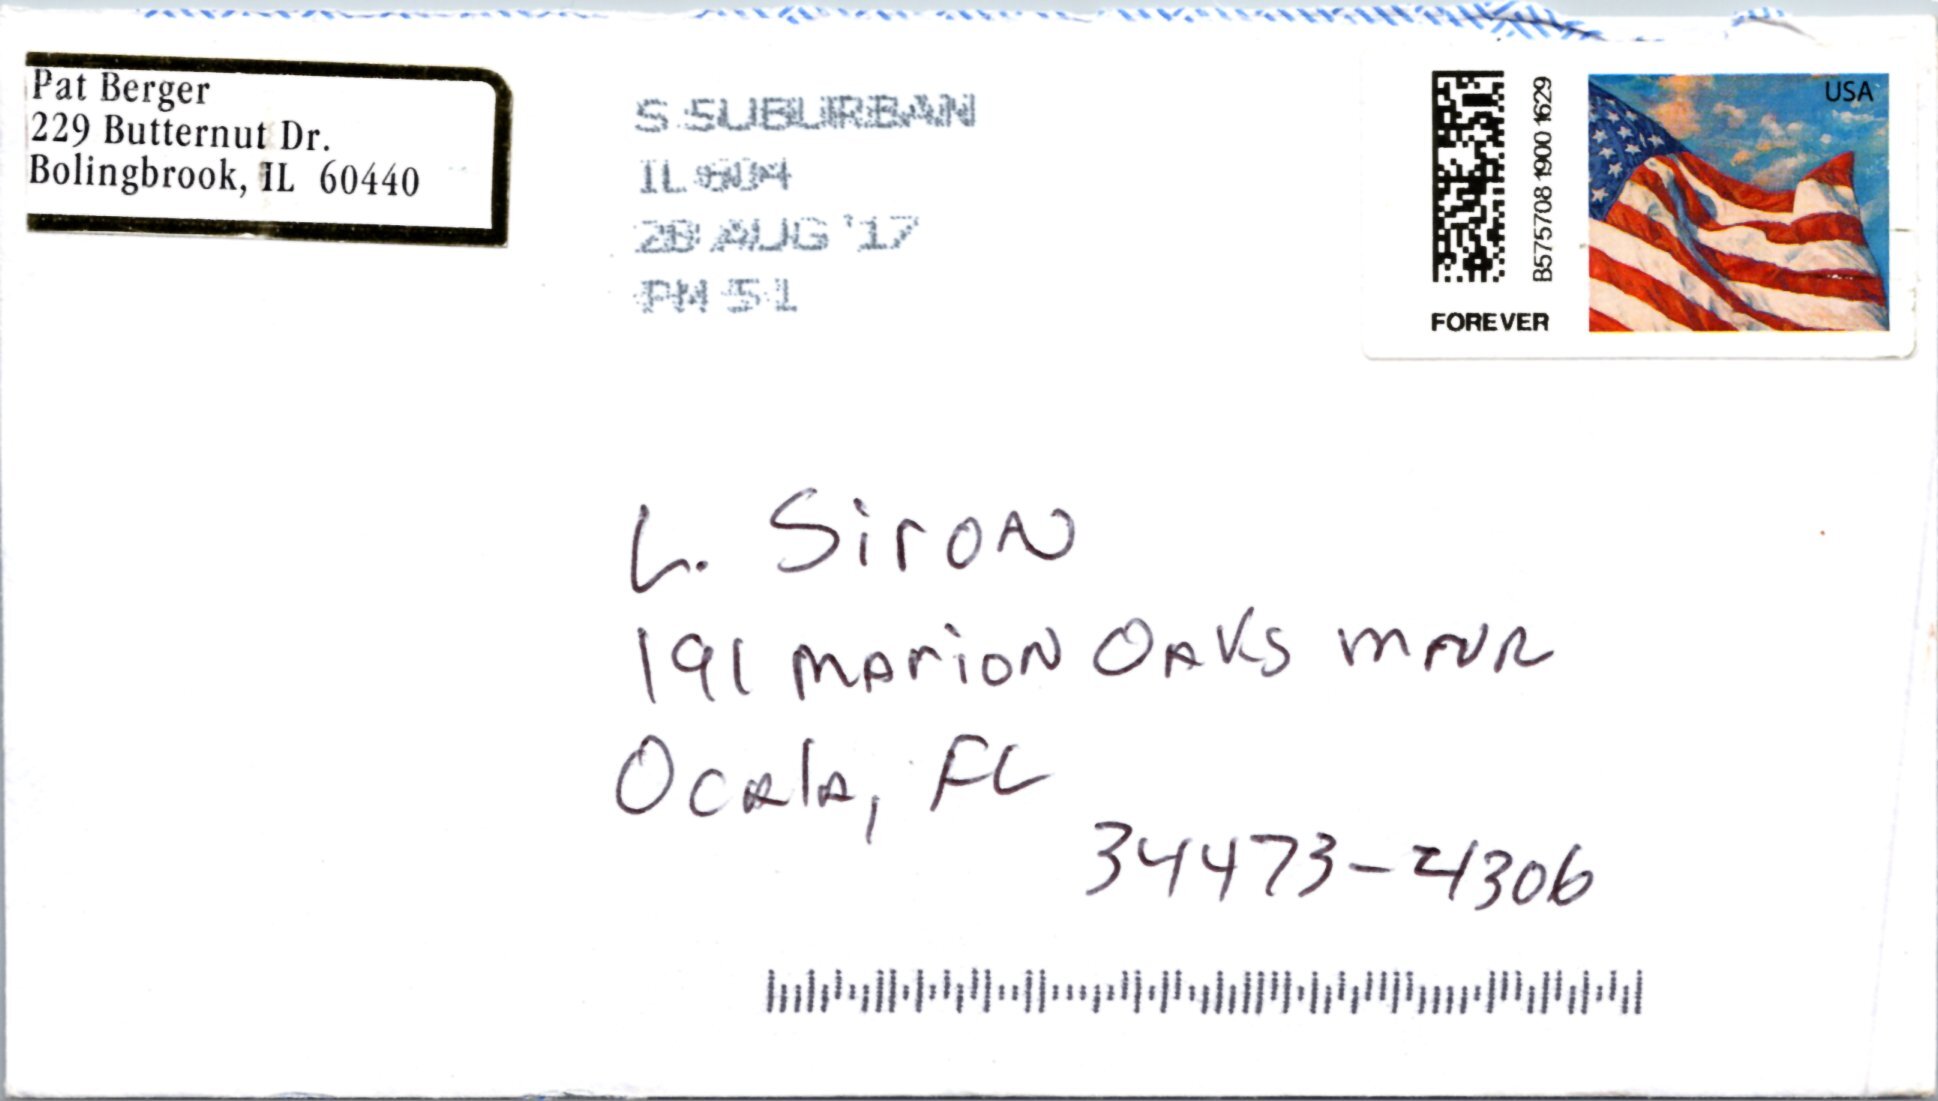 Pat Berger
229 Butternut Dr.
Bolingbrook, IL 60440
S SUBURBAN
IL 604
28 AUG '17
PM 5 L
B575708 1900 1629
FOREVER
USA
L. Siron
191 Marion Oaks Mnr
Ocala, FL
34473-4306